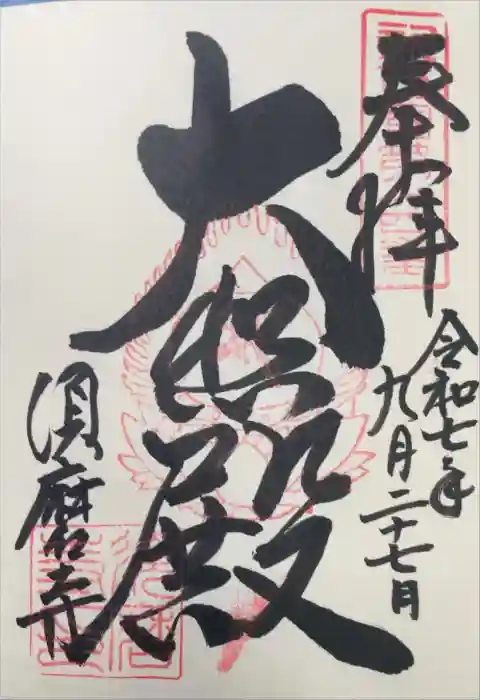 奉拝
令和七年
九月二十七日
大悲殿
須磨寺